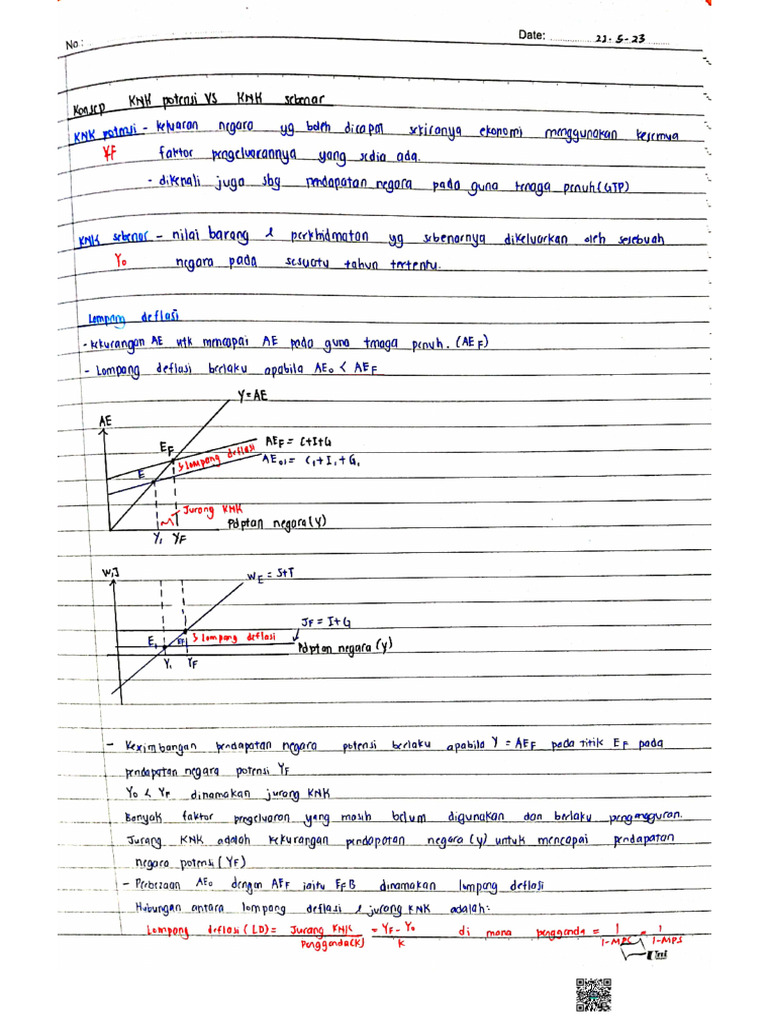 No.:
Date: 21-5-23
Konsep KNK potensi VS KNK sebenar
KNK potensi - keluaran negara yg boleh dicapai sekiranya ekonomi menggunakan kesemua
YF faktor pengeluarannya yang sedia ada.
- dikenali juga sbg pendapatan negara pada guna tenaga penuh (GTP)
KNK sebenar - nilai barang & perkhidmatan yg sebenarnya dikeluarkan oleh sesebuah
Yo negara pada sesuatu tahun tertentu.
Lompang deflasi
- kekurangan AE utk mencapai AE pada guna tenaga penuh. (AEF)
- Lompang deflasi berlaku apabila AEo < AEF
Y = AE
AE
EF
AEF = C+I+G
} lompang deflasi
AEo1 = C1 + I1 + G1
E
Jurang KNK
Pdptan negara (Y)
Y1 YF
W,J
WE = S+T
JF = I+G
E1 EF } lompang deflasi
Pdptan negara (Y)
Y1 YF
- Keseimbangan pendapatan negara potensi berlaku apabila Y = AEF pada titik EF pada
pendapatan negara potensi YF
Yo < YF dinamakan jurang KNK
Banyak faktor pengeluaran yang masih belum digunakan dan berlaku pengangguran.
Jurang KNK adalah kekurangan pendapatan negara (y) untuk mencapai pendapatan
negara potensi (YF)
- Perbezaan AEo dengan AEF iaitu EFB dinamakan lompang deflasi
Hubungan antara lompang deflasi & jurang KNK adalah:
Lompang deflasi (LD) = Jurang KNK / Pengganda (K) = YF - Yo / K di mana pengganda = 1 / 1-MPS = 1 / 1-MPS